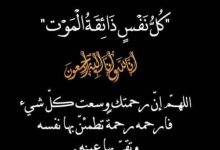 "كُلُّ نَفْسٍ ذَائِقَةُ الْمَوْت"
إنا لله وإنا إليه راجعون
اللهم إنّ رحمتك وسعت كلّ شيء
فارحمه رحمة تطمئنّ بها نفسه
وتقرّ بها عينه